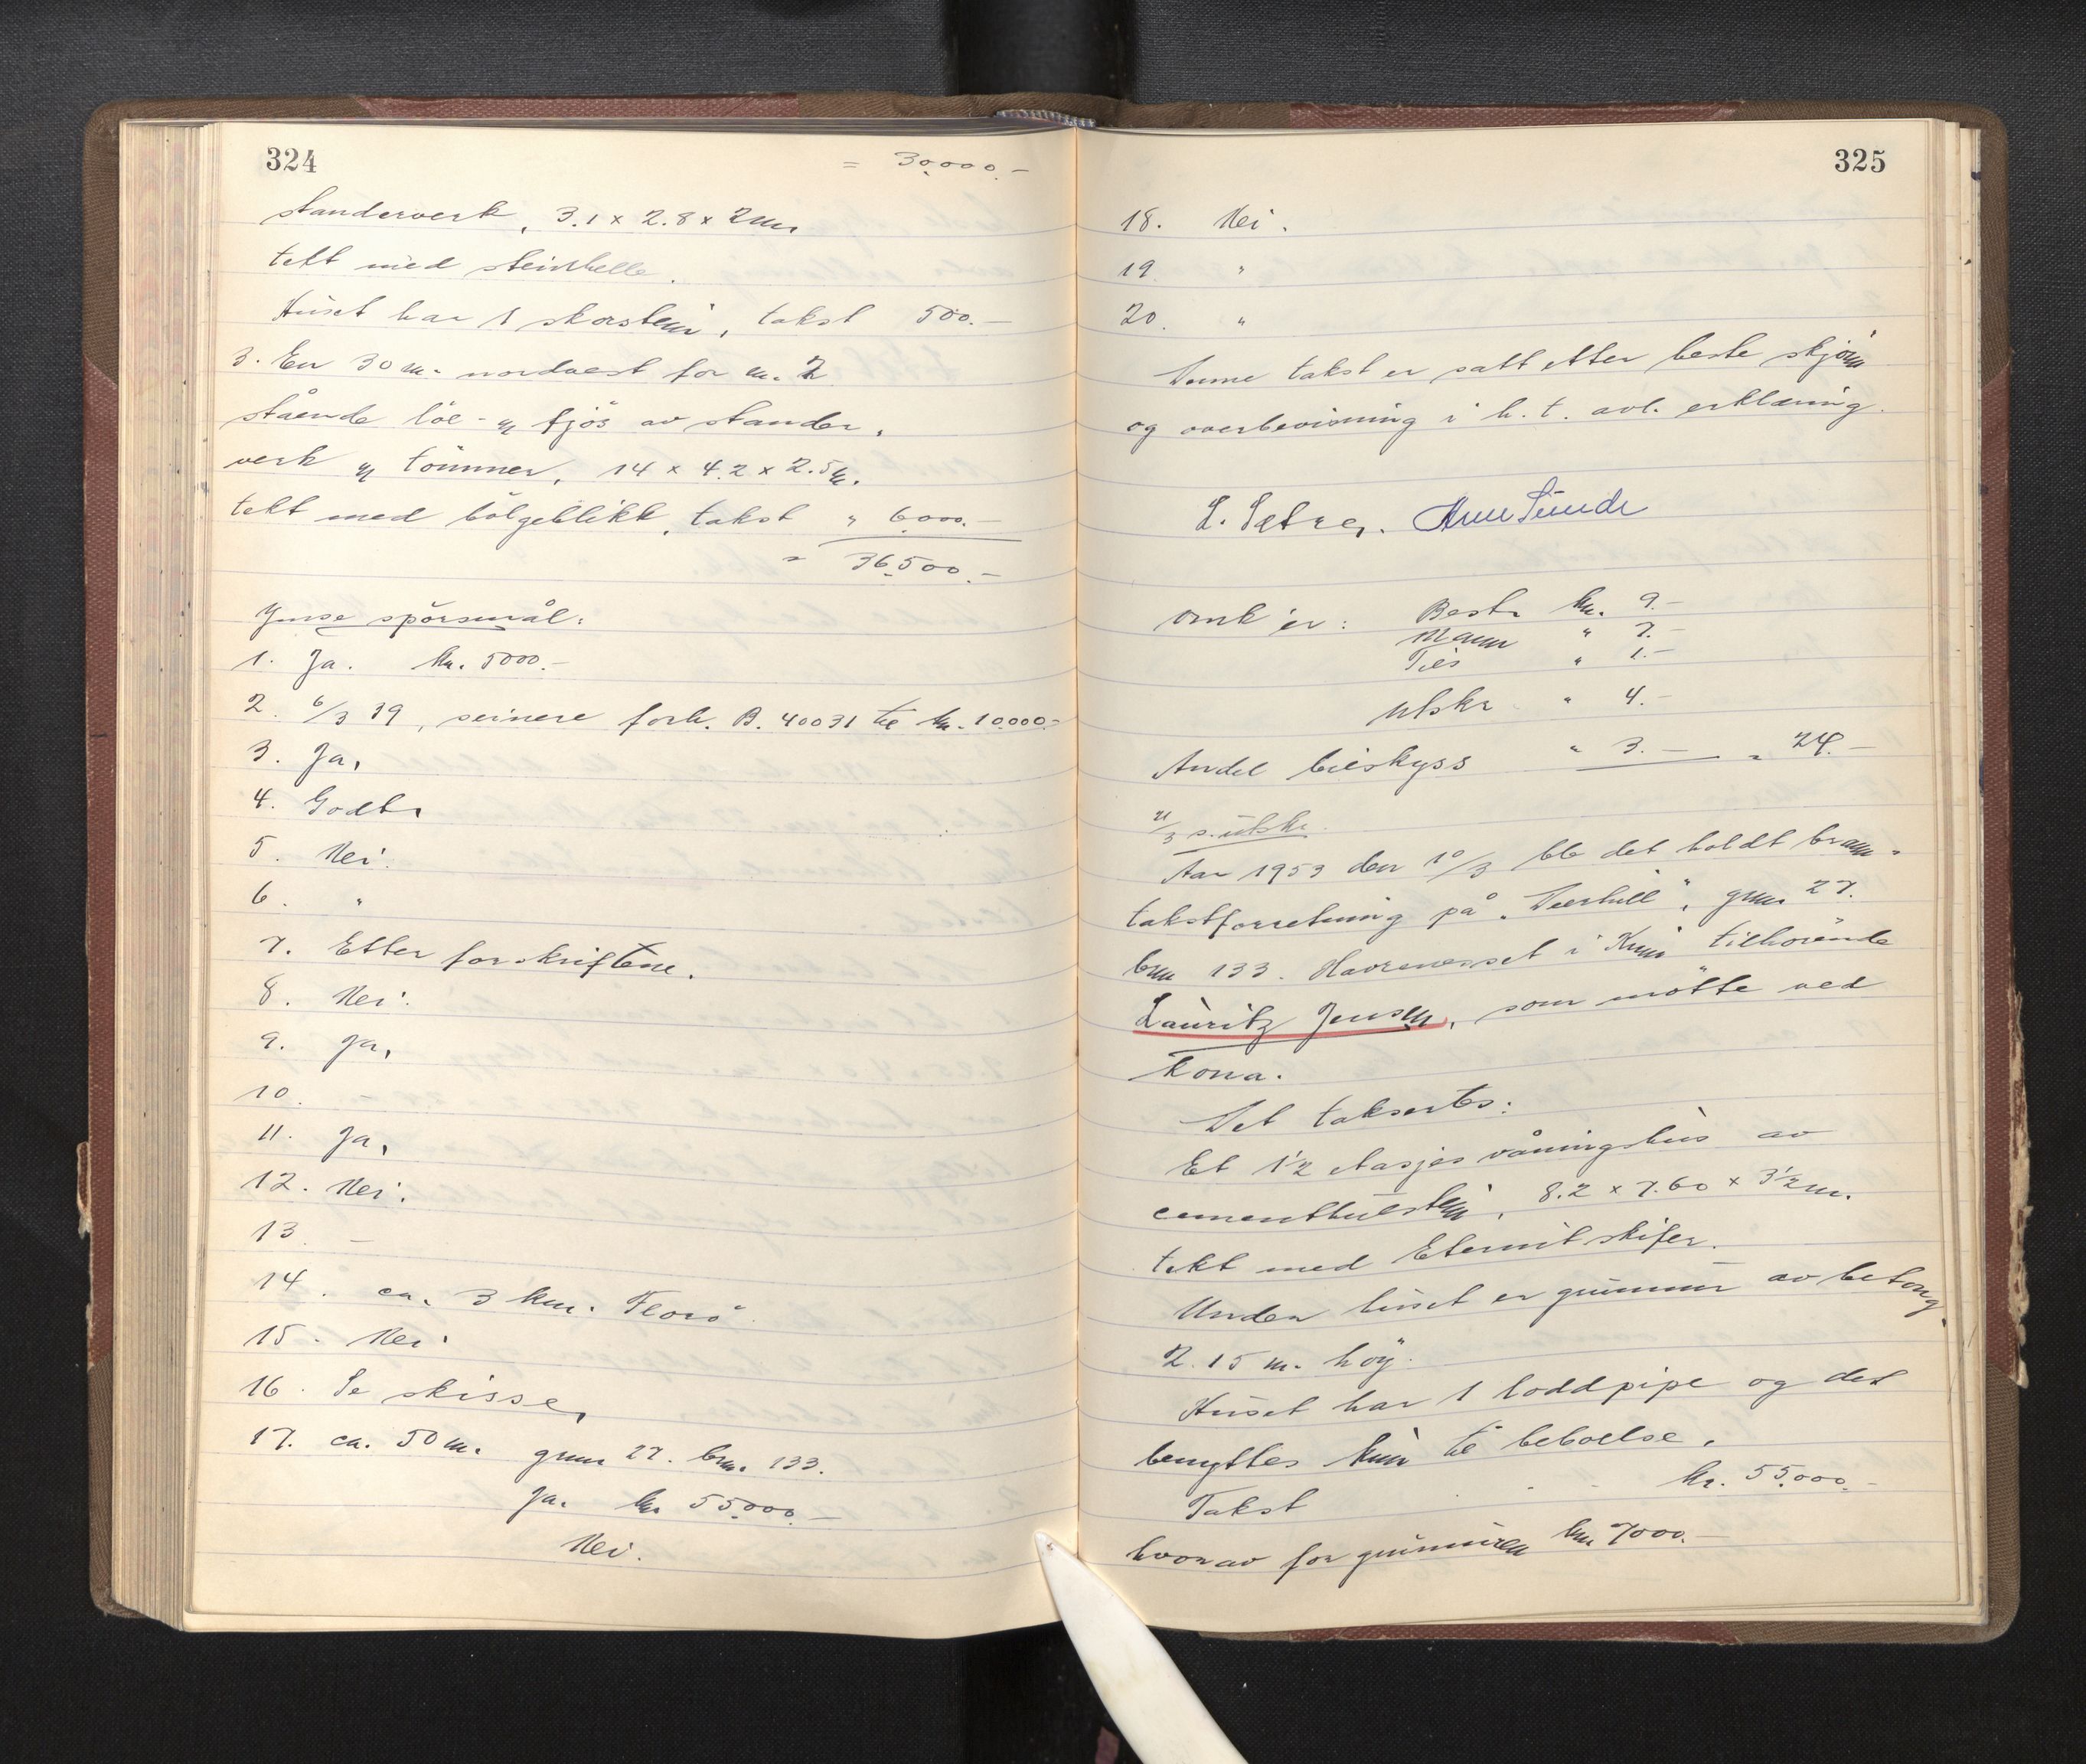 324
= 30.000.-
standerverk, 3.1 x 2.8 x 2m,
tekt med steinhelle.
Huset har 1 skorstein, takst 500.-
3. En 30 m. nordvest for m. 2
stående löe- og fjös av stander,
verk og tömmer, 14 x 4.2 x 2.5m.
tekt med bölgeblikk, takst " 6.000.-
= 36.500.-
Ymse spörsmål:
1. Ja. kr. 5000.-
2. 6/3 39, seinere forh. B. 40031 til kr. 10.000.-
3. Ja,
4. Godt,
5. Nei.
6. "
7. Etter forskriftene.
8. Nei.
9. Ja,
10.
11. Ja,
12. Nei.
13. -
14. ca. 3 km. Florö
15. Nei.
16. Se skisse,
17. ca. 50 m. gnr. 27. bnr. 133.
Ja. kr 55.000.-
Nei.
325
18. Nei.
19. "
20. "
Denne takst er satt etter beste skjönn
og overbevisning i h. t. avl. erklæring.
L. Sætre,. Sunde
Omk er: Best. kr. 9.-
Mann " 7.-
Til's " 1.-
Utskr " 4.-
Andel bilskyss " 3.- = 24.-
21/3 s. utskr.
Aar 1953 den 10/3 ble det holdt brann-
takstforretning på " ", gnr. 27.
bnr 133. Havrenesset i Kinn tilhörende
Lauritz Jensen, som mötte ved
kona.
Det taksertes:
Et 1 1/2 etasjes våningshus av
cementhulstein, 8.2 x 7.60 x 3 1/2 m.
tekt med Eternitskifer.
Under huset er grunnmur av betong,
2.15 m. höy.
Huset har 1 loddpipe og det
benyttes kun til beboelse.
Takst kr. 55.000.-
hvorav for grunnmuren kr. 7000.-